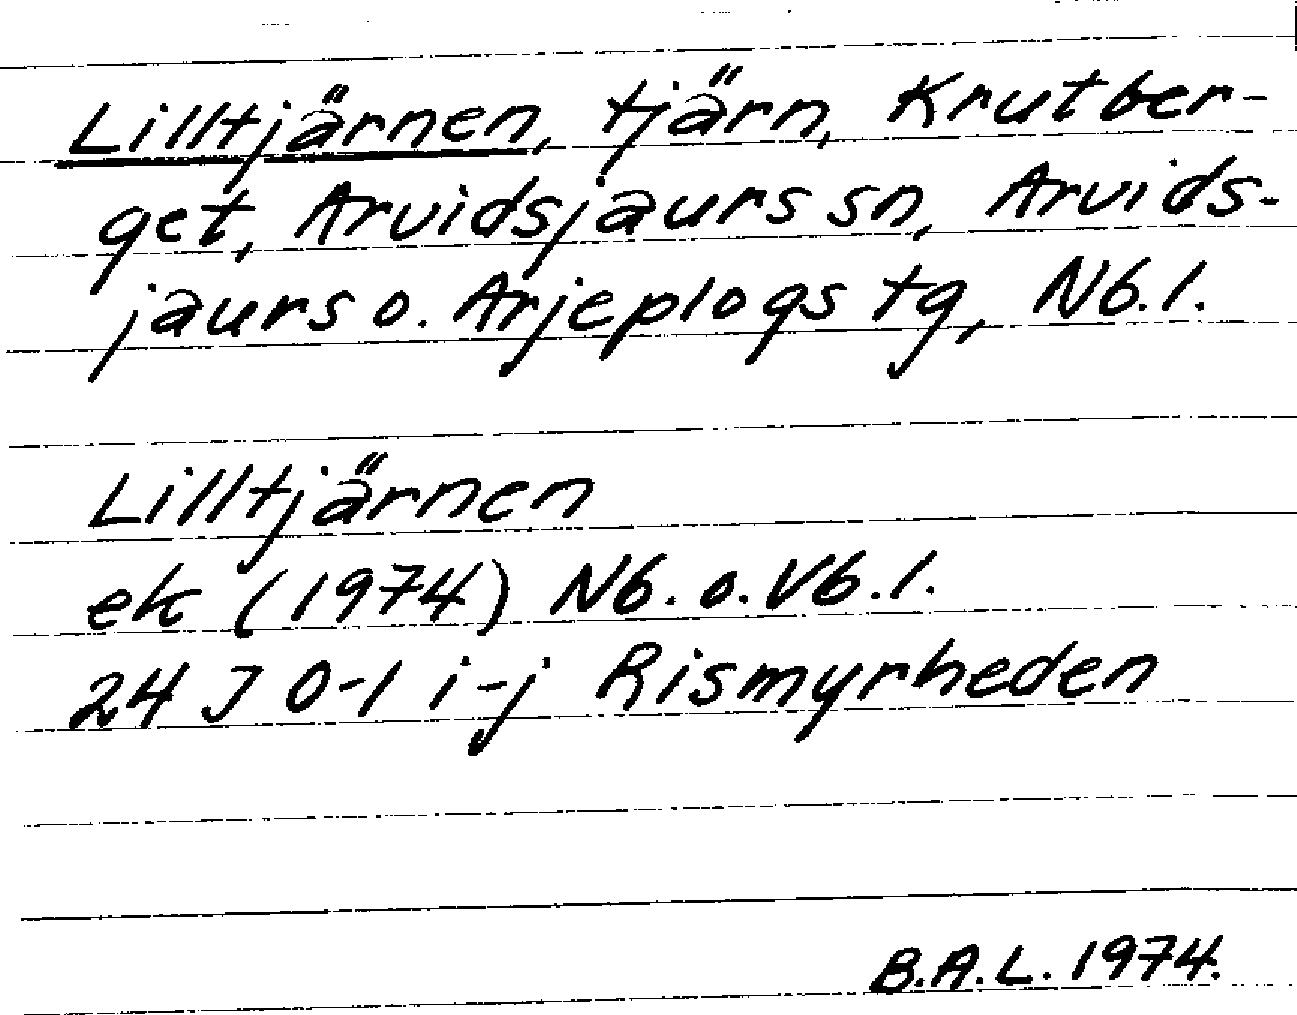 Lilltjärnen, tjärn, Krutber-
get, Arvidsjaurs sn, Arvids-
jaurs o. Arjeplogs tg, Nb. l.
Lilltjärnen
ek (1974) Nb. o. Vb. l.
24 J 0-1 i-j Rismyrheden
B.A.L. 1974.